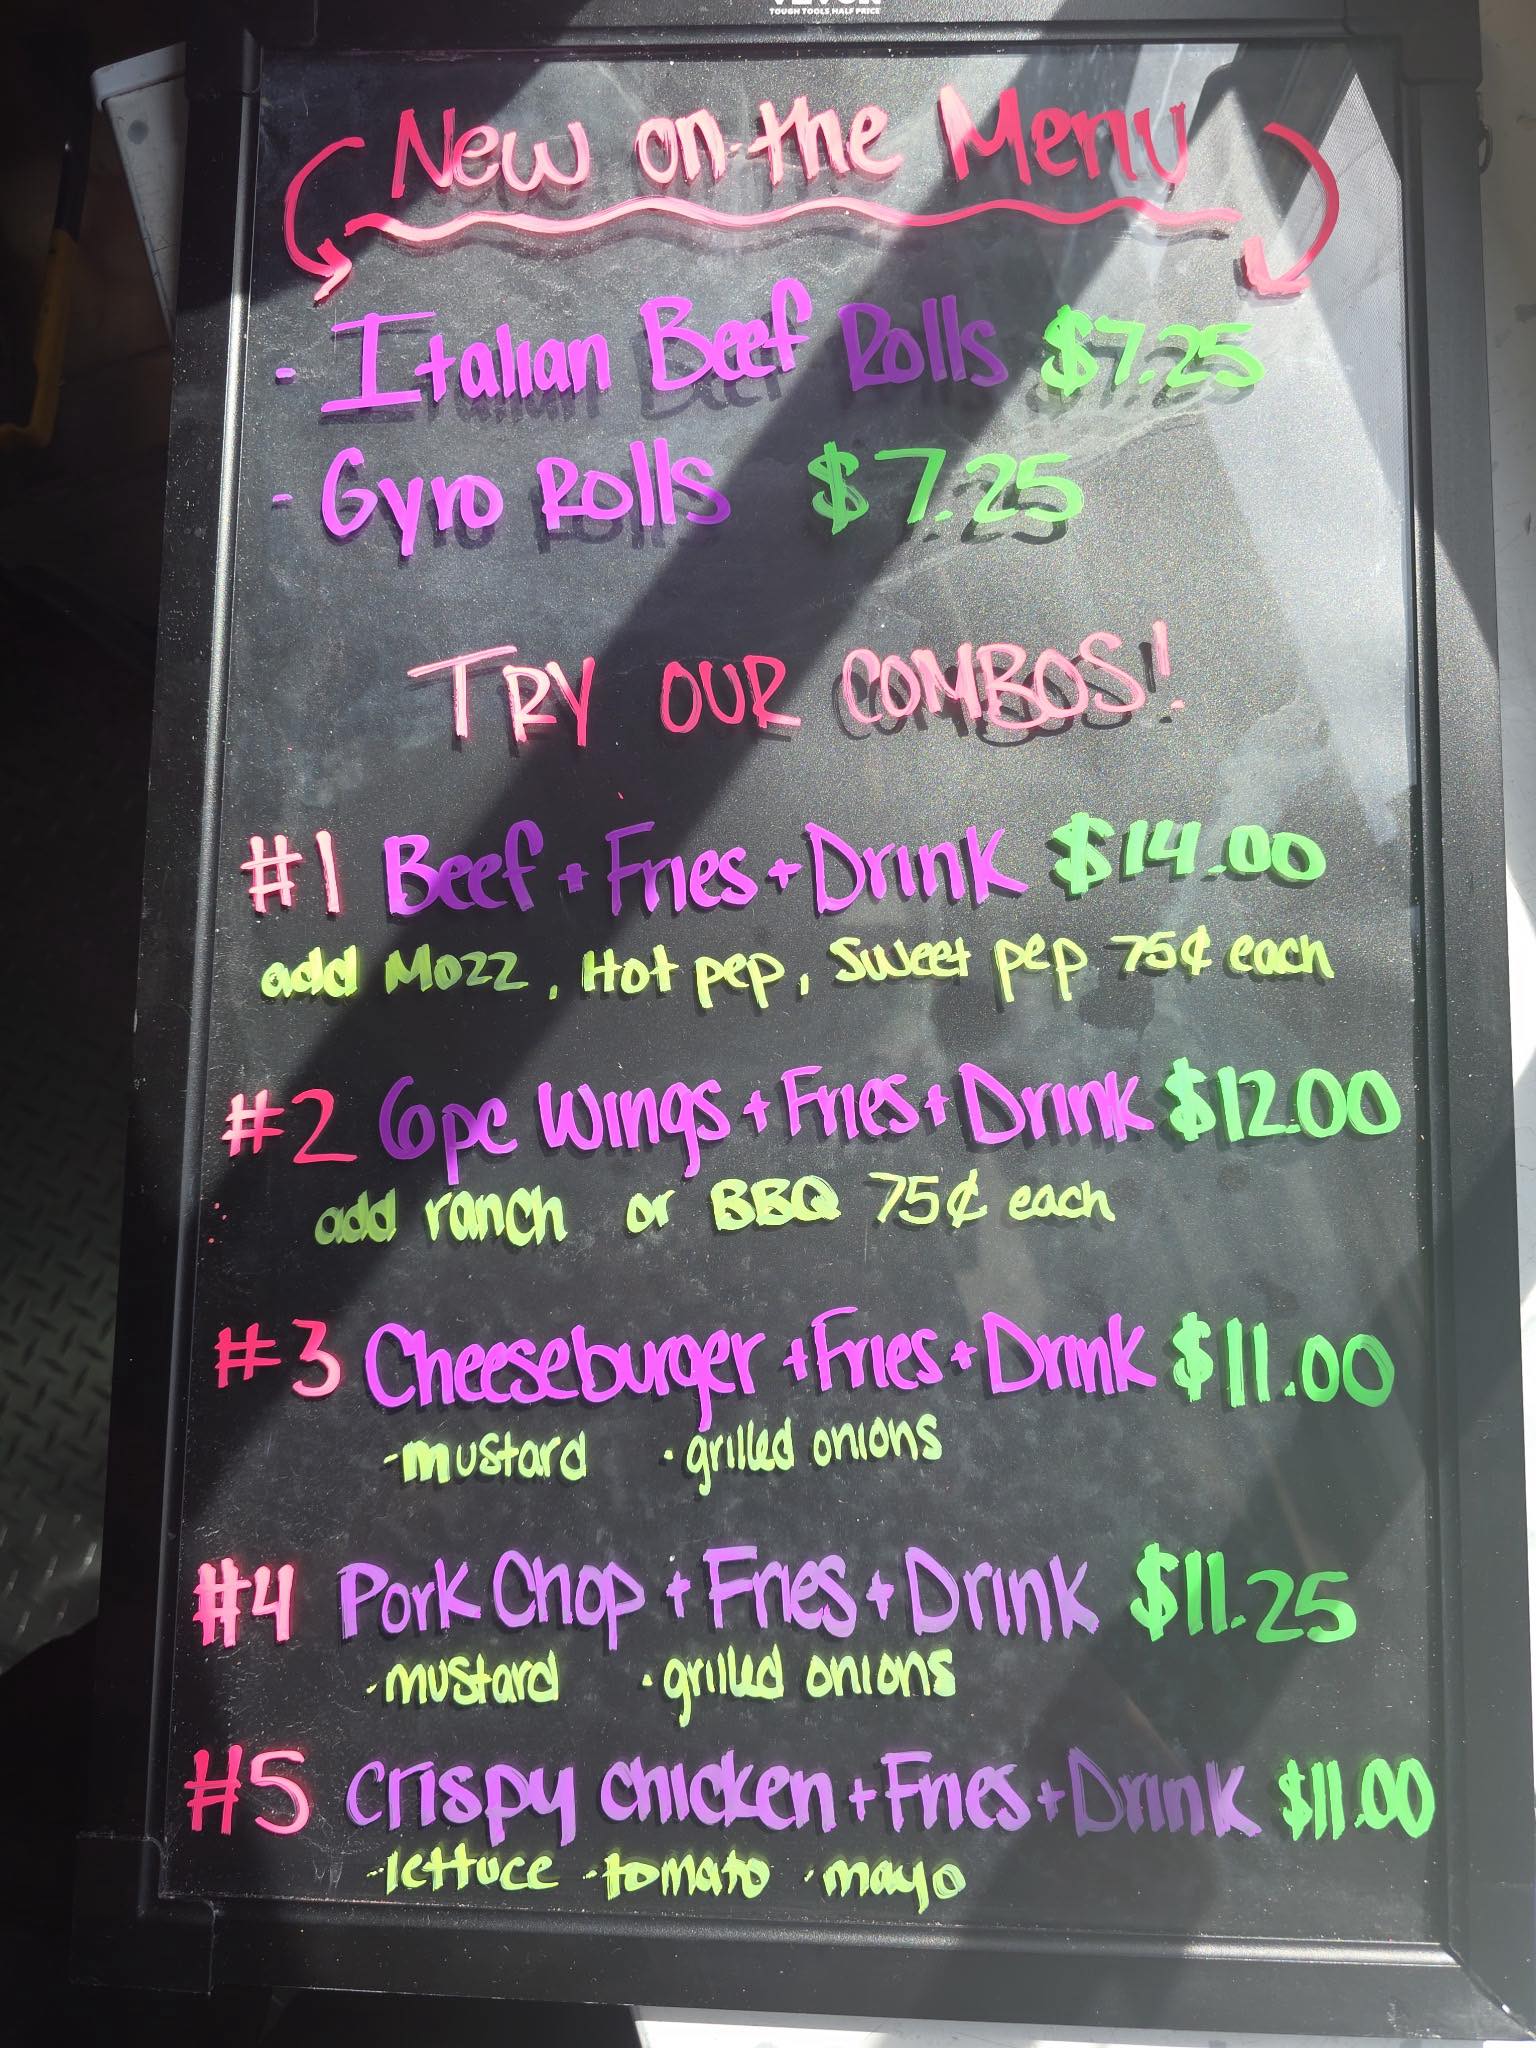 TOUGH TOOLS, HALF PRICE
New on the Menu
- Italian Beef Rolls $7.25
- Gyro Rolls $7.25
TRY OUR COMBOS!
#1 Beef + Fries + Drink $14.00
add Mozz, Hot pep, Sweet pep 75¢ each
#2 6pc Wings + Fries + Drink $12.00
add ranch or BBQ 75¢ each
#3 Cheeseburger + Fries + Drink $11.00
- mustard · grilled onions
#4 Pork Chop + Fries + Drink $11.25
· mustard · grilled onions
#5 Crispy chicken + Fries + Drink $11.00
- lettuce · tomato · mayo